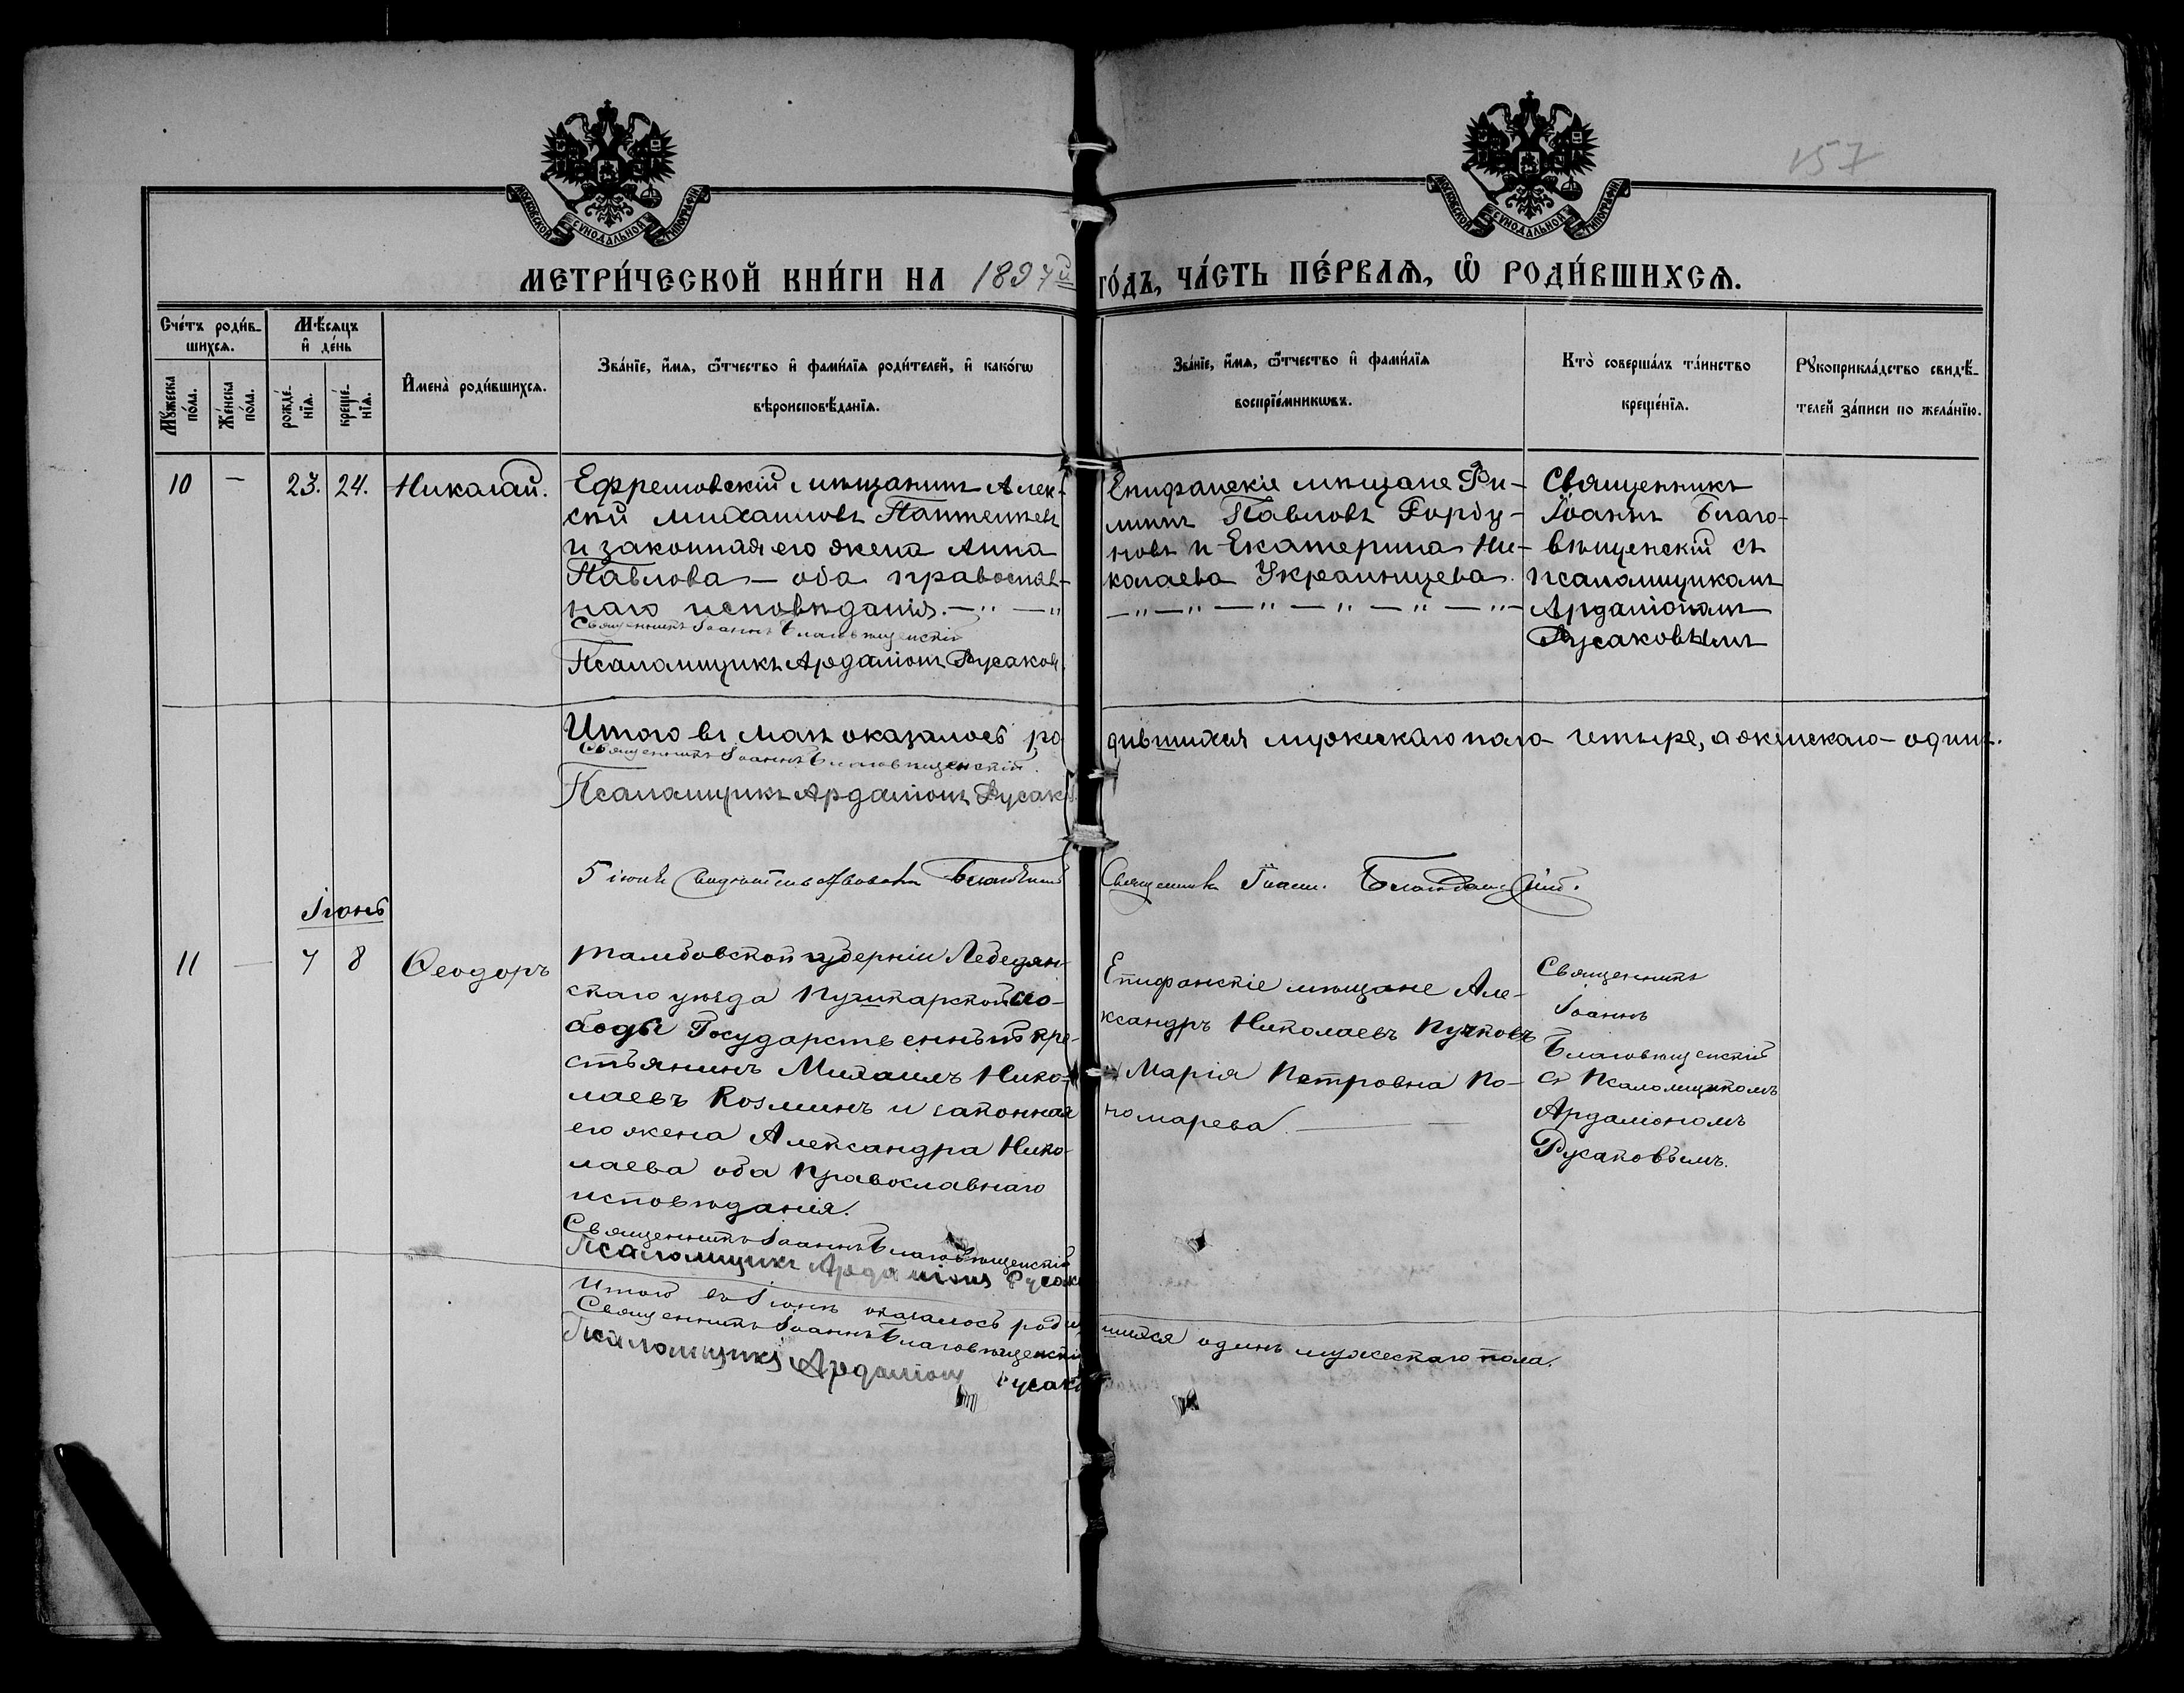 157
МОСКОВСКОЙ СѴНОДАЛЬНОЙ ТИПОГРАФІИ
МОСКОВСКОЙ СѴНОДАЛЬНОЙ ТИПОГРАФІИ
МЕТРИ́ЧЕСКОЙ КНИ́ГИ НА 1897й ГО́ДЪ, ЧА́СТЬ ПЕ́РВАѦ, Ѽ РОДИ́ВШИХСѦ.
Сче́тъ роди́в-
шихсѧ.
Мѣ́сѧцъ
и҆ де́нь
Мꙋ́жеска
по́ла.
Же́нска
по́ла.
рожде́-
нїѧ.
креще́-
нїѧ.
И҆мена̀ роди́вшихсѧ.
Зва́нїе, и҆́мѧ, ѻ҆́тчество и҆ фами́лїѧ роди́телей, и҆ како́гѡ
вѣроисповѣ́данїѧ.
Зва́нїе, и҆́мѧ, ѻ҆́тчество и҆ фами́лїѧ
воспрїе́мникѡвъ.
Кто̀ соверша́лъ та́инство
креще́нїѧ.
Рꙋкоприкла́дство свидѣ́-
телей за́писи по жела́нїю.
10 — 23. 24. Николай.
Ефремовскій мѣщанинъ Алек-
сѣй Михаиловъ
и законная его жена Анна
Павлова — оба православ-
наго исповѣданія. — " — "
Священникъ Іоаннъ Благовѣщенскій
Псаломщикъ Ардаліонъ Русаковъ.
Епифанскіе мѣщане Фи-
липпъ Павловъ Горбу-
новъ и Екатерина Ни-
колаева Украинцева.
— " — " — " — " — " — " —
Священникъ
Іоаннъ Благо-
вѣщенскій съ
псаломщикомъ
Ардаліономъ
Русаковымъ
Итого въ маѣ оказалось родившихся мужескаго пола четыре, а женскаго — одинъ.
Священникъ Іоаннъ Благовѣщенскій.
Псаломщикъ Ардаліонъ Русаковъ.
5 іюня Свидѣтельствовалъ Благочинный Священникъ Іоаннъ
Іюнь
11 — 7 8 Ѳеодоръ
Тамбовской губерніи Лебедян-
скаго уѣзда Пушкарской сло-
боды Государственный кре-
стьянинъ Михаилъ Нико-
лаевъ Козминъ и законная
его жена Александра Нико-
лаева оба православнаго
исповѣданія.
Священникъ Іоаннъ Благовѣщенскій
Псаломщикъ Ардаліонъ Русаковъ
Епифанскіе мѣщане Але-
ксандръ Николаевъ Пучковъ
и Марія Петровна По-
номарева. — —
Священникъ
Іоаннъ
Благовѣщенскій
съ Псаломщикомъ
Ардаліономъ
Русаковымъ.
Итого въ Іюнѣ оказалось родившихся одинъ мужескаго пола.
Священникъ Іоаннъ Благовѣщенскій
Псаломщикъ Ардаліонъ Русаковъ